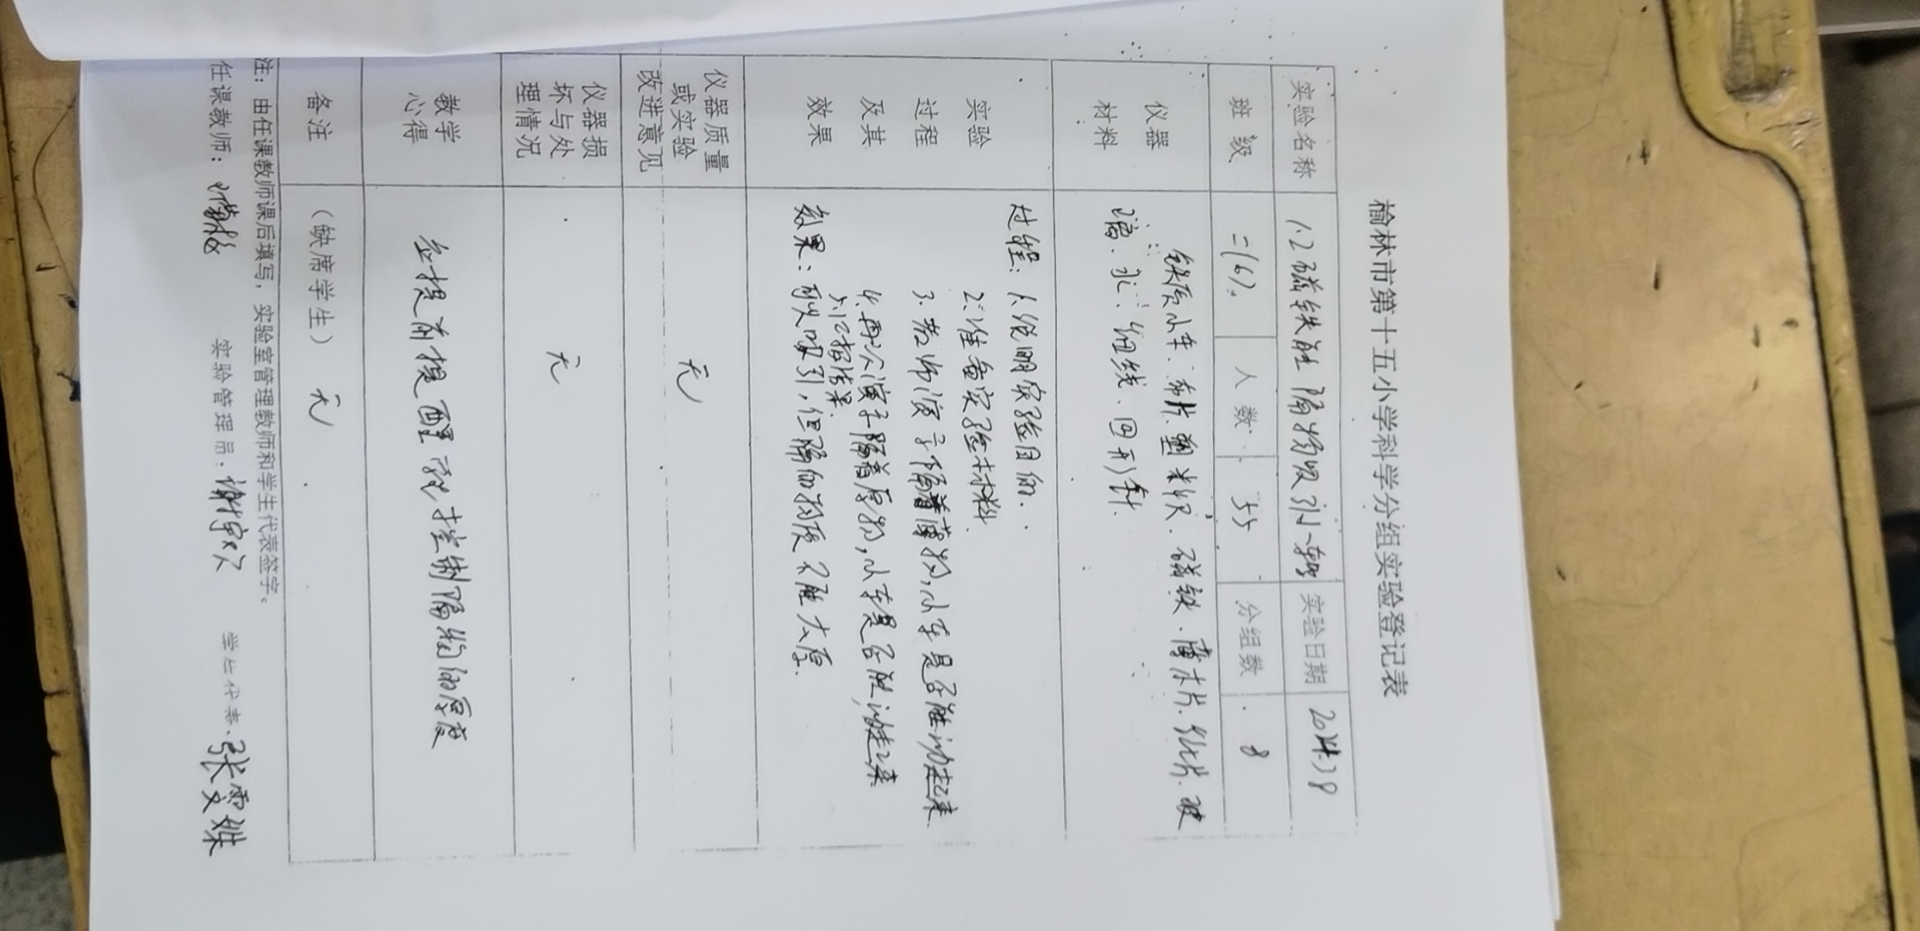 榆林市第十五小学科学分组实验登记表
实验名称 1.2磁铁能隔物吸引小车吗 实验日期
班 级 二(6) 人 数 55 分组数 8
仪器
材料
铁质小车、布片、塑料尺、磁铁、薄木片、纸片、玻
璃、水、细线、回形针
实验
过程
及其
效果
过程：1.说明实验目的.
2.准备实验材料
3.教师演示隔着薄物,小车是否能动起来
4.再次演示隔着厚物,小车是否能动起来
5.汇报结果.
效果：可以吸引,但隔的物质不能太厚.
仪器质量
或实验
改进意见
无
仪器损
坏与处
理情况
无
教学
心得
应提前提醒孩子控制隔物的厚度
备注
（缺席学生） 无
注：由任课教师课后填写，实验室管理教师和学生代表签字。
任课教师： 实验管理员： 学生代表：张雯姝